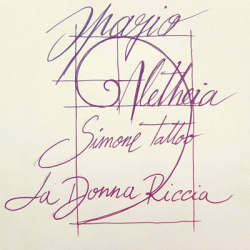 Spazio
Aletheia
Simone Tattoo
La Donna Riccia